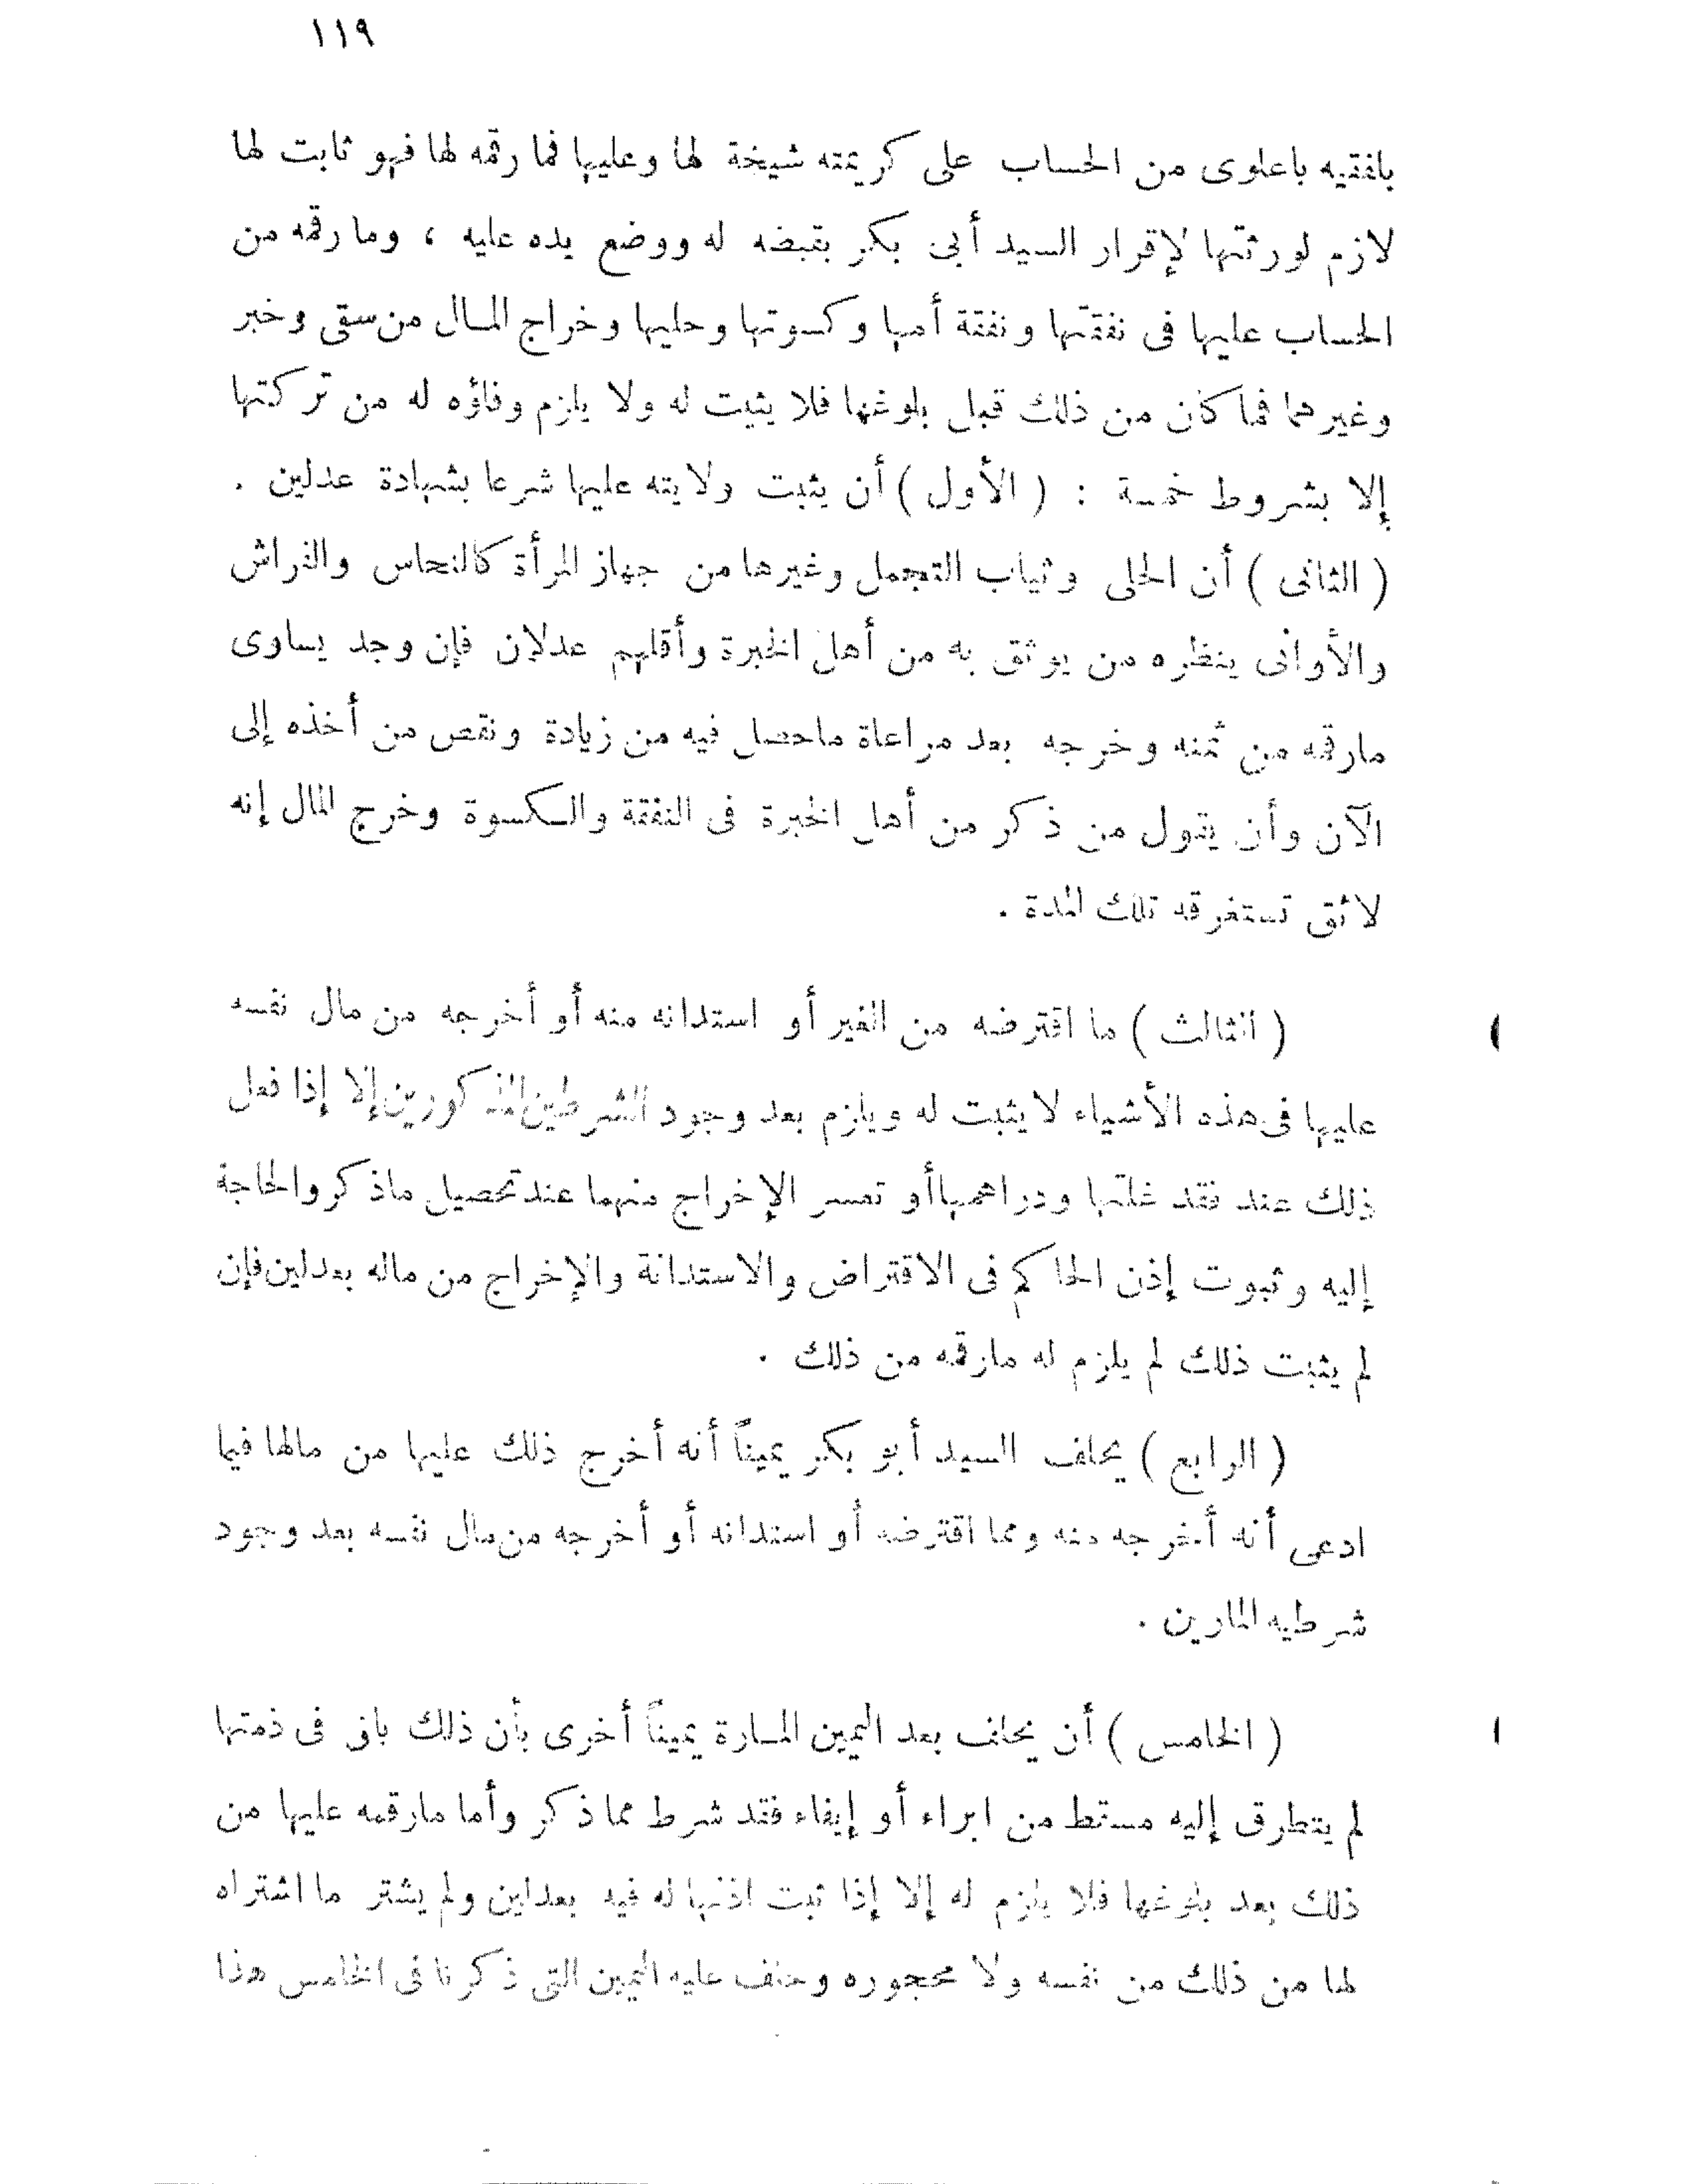 ١١٩
بافقيه باعلوى من الحساب على كريمته شيخة لها وعليها فما رقمه لها فهو ثابت لها
لازم لورثتها لإقرار السيد أبى بكر بقبضه له ووضع يده عليه ، وما رقمه من
الحساب عليها فى نفقتها ونفقة أمها وكسوتها وحليها وخراج المال من سقى وخبر
وغيرهما فما كان من ذلك قبل بلوغها فلا يثبت له ولا يلزم وفاؤه له من تركتها
إلا بشروط خمسة : ( الأول ) أن يثبت ولايته عليها شرعا بشهادة عدلين .
( الثانى ) أن الحلى وثياب التجمل وغيرها من جهاز المرأة كالنحاس والفراش
والأوانى ينظره من يوثق به من أهل الخبرة وأقلهم عدلان فإن وجد يساوى
مارقمه من ثمنه وخرجه بعد مراعاة ماحصل فيه من زيادة ونقص من أخذه إلى
الآن وأن يقول من ذكر من أهل الخبرة فى النفقة والكسوة وخرج المال إنه
لائق تستغرقه تلك المدة .
( الثالث ) ما اقترضه من الغير أو استدانه منه أو أخرجه من مال نفسه
عليها فى هذه الأشياء لا يثبت له ويلزم بعد وجود الشرطين المذكورين إلا إذا فعل
ذلك عند فقد غلتها ودراهمها أو تعسر الإخراج منهما عند تحصيل ماذكر والحاجة
إليه وثبوت إذن الحاكم فى الاقتراض والاستدانة والإخراج من ماله بعدلين فإن
لم يثبت ذلك لم يلزم له مارقمه من ذلك .
( الرابع ) يحلف السيد أبو بكر يميناً أنه أخرج ذلك عليها من مالها فيما
ادعى أنه أخرجه منه ومما اقترضه أو استدانه أو أخرجه من مال نفسه بعد وجود
شرطيه المارين .
( الخامس ) أن يحلف بعد اليمين المارة يميناً أخرى بأن ذلك باق فى ذمتها
لم يتطرق إليه مسقط من ابراء أو إيفاء فقد شرط مما ذكر وأما مارقمه عليها من
ذلك بعد بلوغها فلا يلزم له إلا إذا ثبت اذنها له فيه بعدلين ولم يشتر ما اشتراه
لها من ذلك من نفسه ولا محجوره وحلف عليه اليمين التى ذكرنا فى الخامس هذا